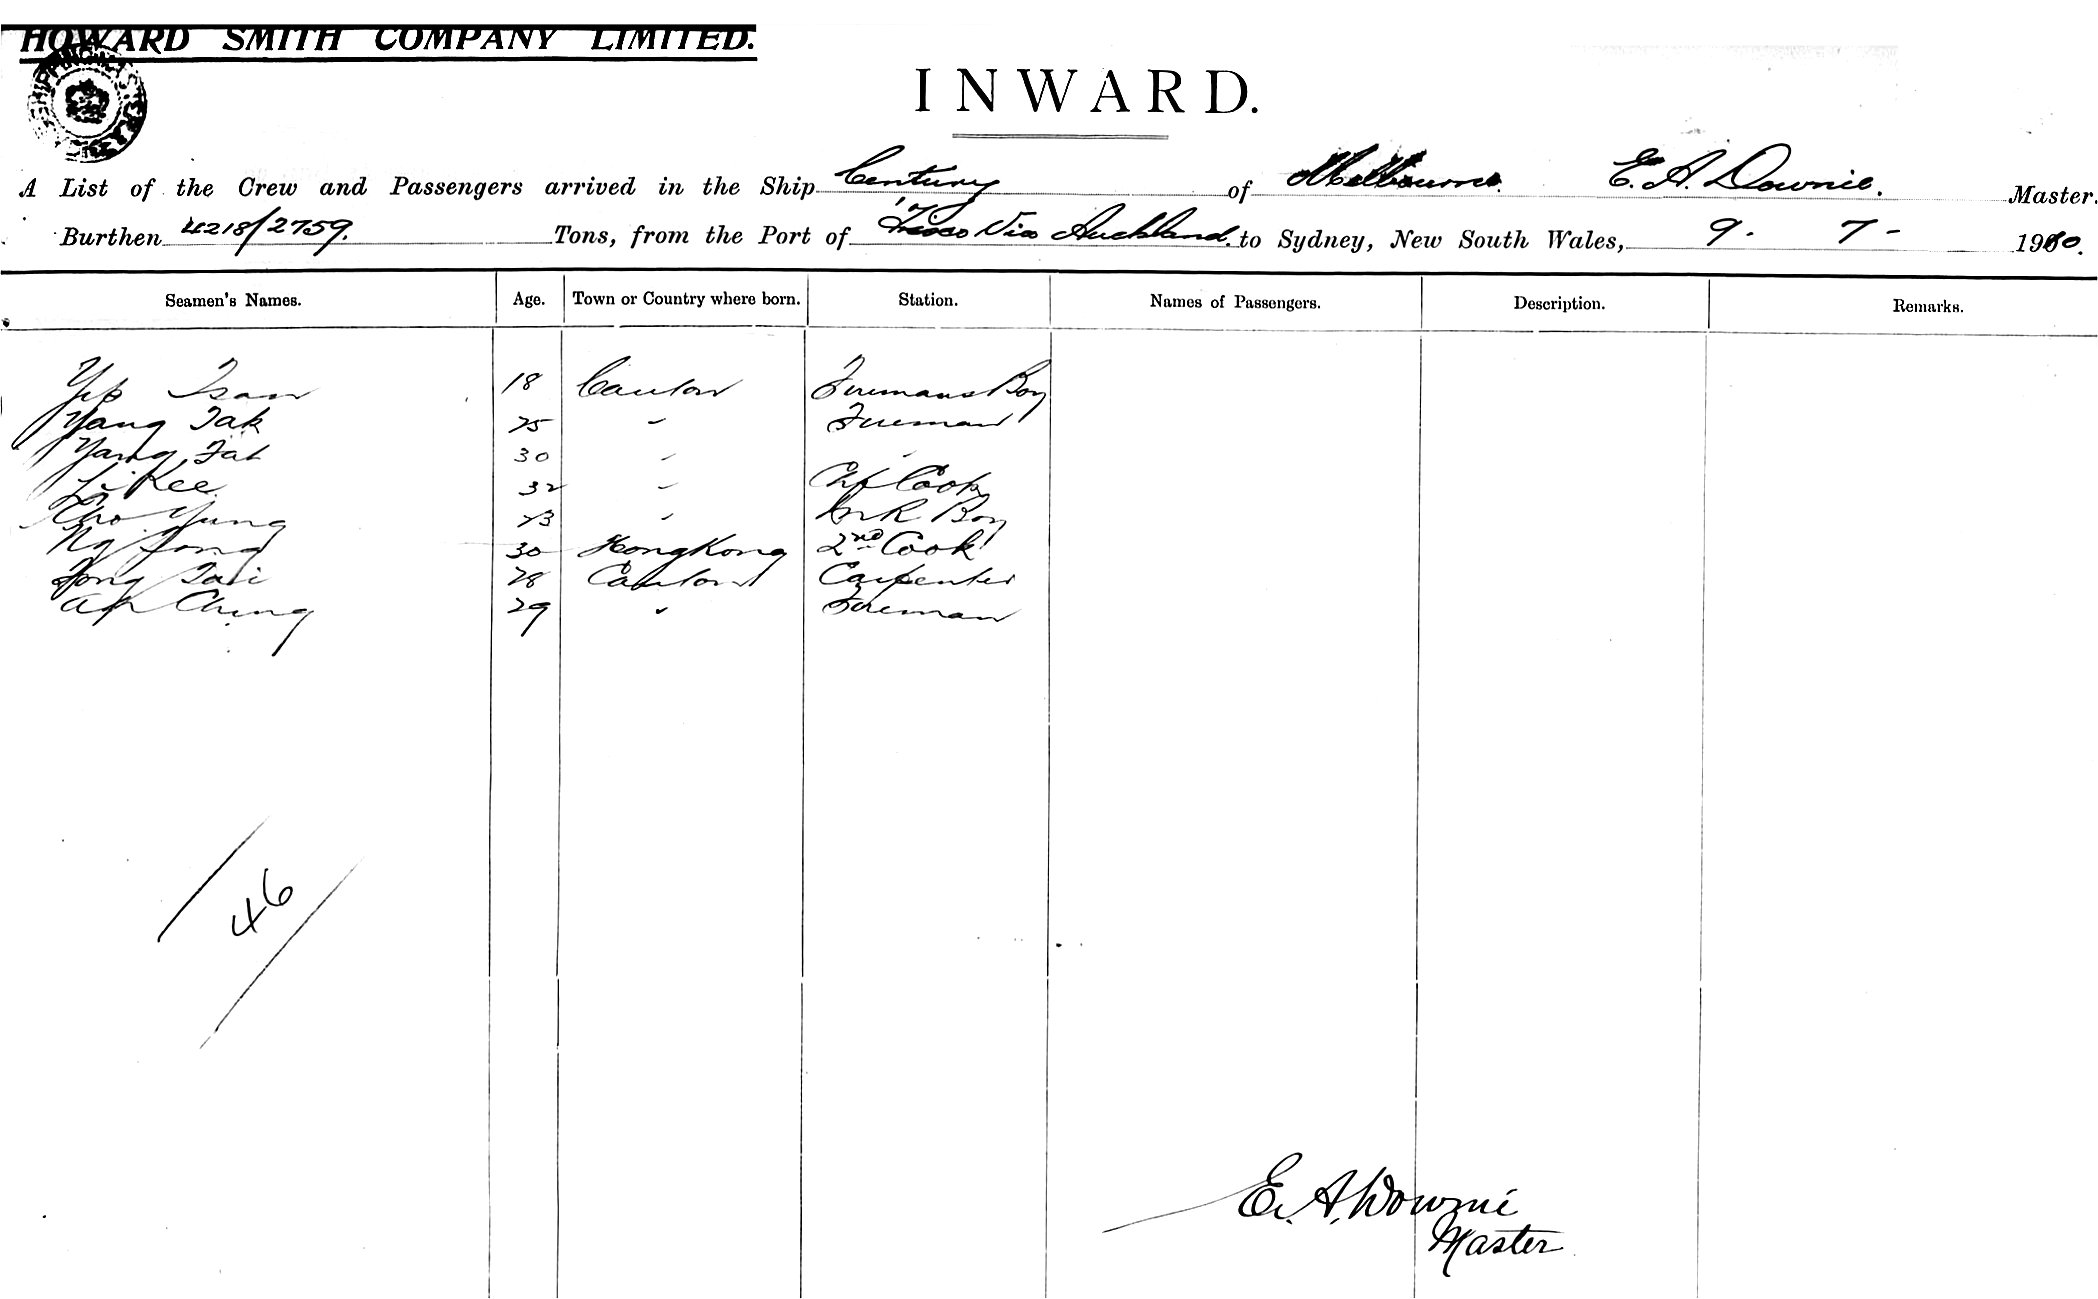 HOWARD SMITH COMPANY LIMITED.
INWARD.
A List of the Crew and Passengers arrived in the Ship Century of Melbourne. E. A. Downie. Master.
Burthen 4218/2759. Tons, from the Port of Frisco Via Auckland. to Sydney, New South Wales, 9. 7 - 1910.
Seamen's Names. Age. Town or Country where born. Station. Names of Passengers. Description. Remarks.
Yip Tsan 18 Canton Firemans Boy
Yang Tak 25 " Fireman
Yang Fat 30 " "
Li Kee 32 " Chf Cook
Cho Yung 23 " Boy
Ng Fong 30 HongKong 2nd Cook
Fong Tai 28 Canton Carpenter
Ah Ching 29 " Fireman
46
E. A. Downie
Master